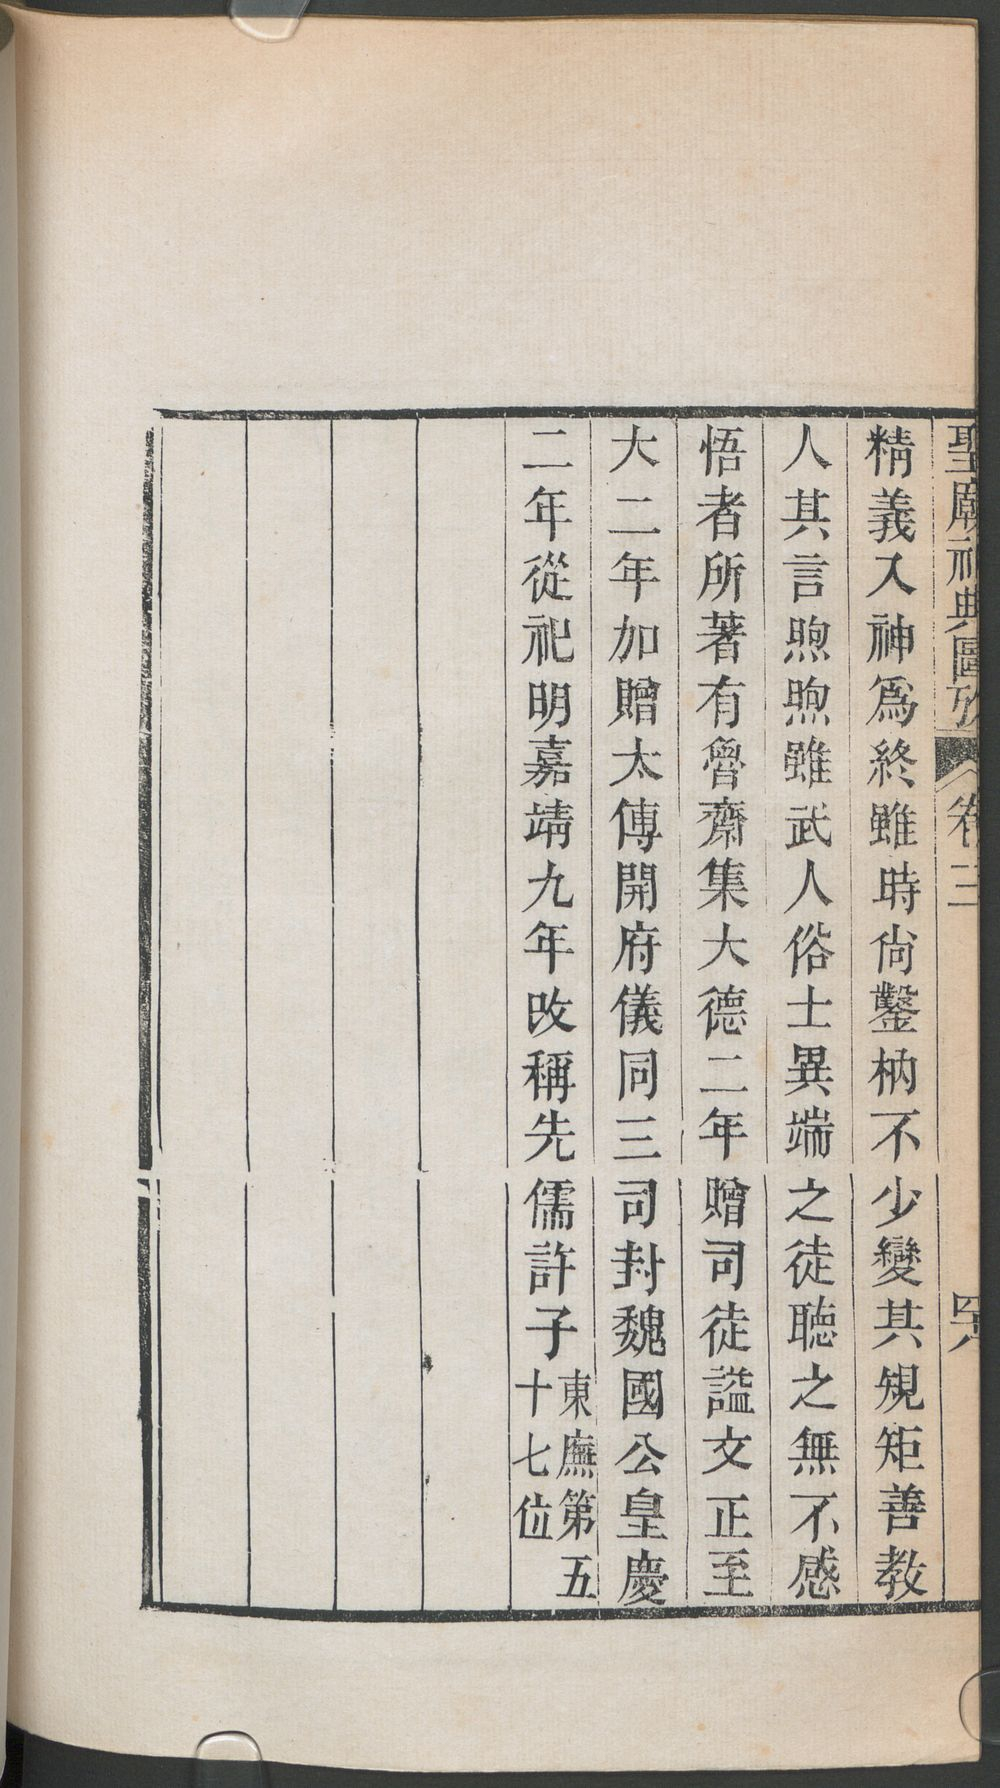 聖廟祀典圖攷 卷三 四八
精義入神爲終雖時尙鑿枘不少變其規矩善教
人其言煦煦雖武人俗士異端之徒聽之無不感
悟者所著有魯齋集大德二年贈司徒諡文正至
大二年加贈太傅開府儀同三司封魏國公皇慶
二年從祀明嘉靖九年改稱先儒許子東廡第五十七位